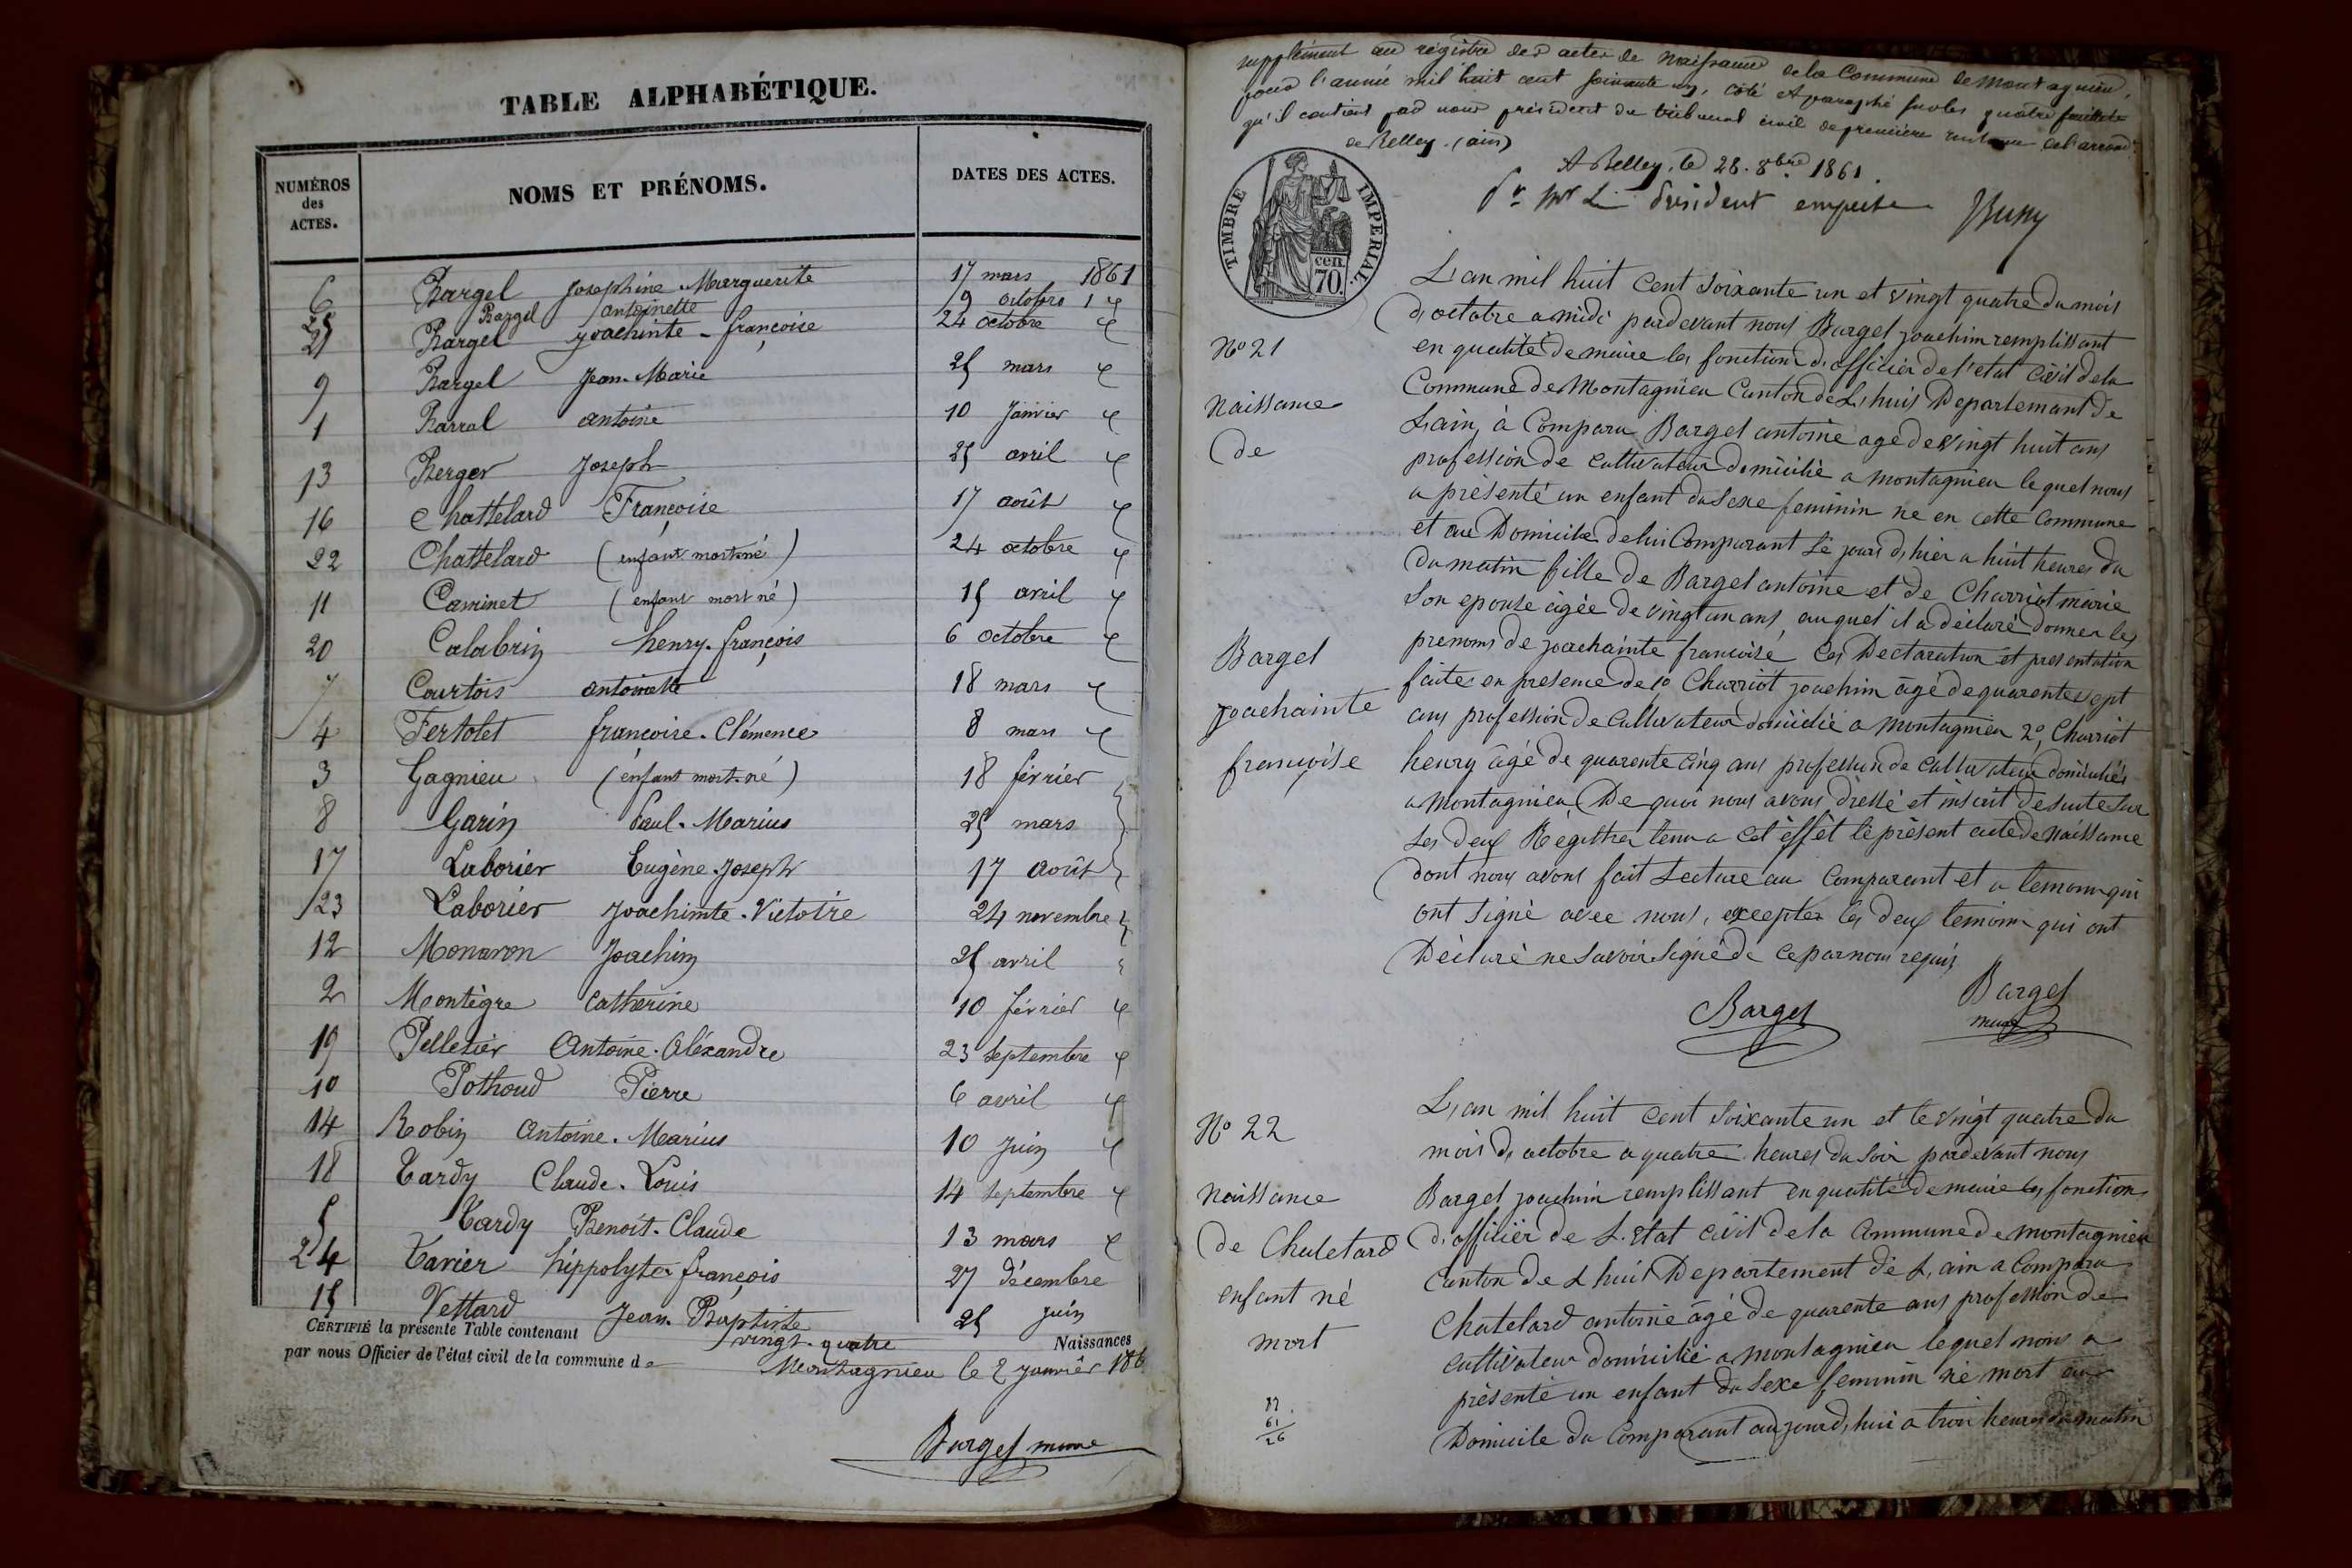 TABLE ALPHABÉTIQUE.
NUMÉROS des ACTES. NOMS ET PRÉNOMS. DATES DES ACTES.
6 Bargel Joséphine Marguerite 17 mars 1861
Bargel antoinette 9 octobre
21 Bargel joachinte-françoise 24 octobre
9 Bargel Jean-Marie 25 mars
1 Barral antoine 10 Janvier
13 Berger Joseph 25 avril
16 Chattelard Françoise 17 août
22 Chattelard (enfant mort-né) 24 octobre
11 Caminet (enfant mort né) 15 avril
20 Calabrin henry-françois 6 octobre
7 Courtois antoinette 18 mars
4 Fertolet françoise-Clémence 8 mars
3 Gagnieu (enfant mort-né) 18 février
8 Garin Paul-Marius 25 mars
17 Laborier Eugène-Joseph 17 Août
23 Laborier Joachimte-Victoire 24 novembre
12 Monavon Joachim 25 avril
2 Montègre Catherine 10 février
19 Pelletier Antoine-Aléxandre 23 septembre
10 Pothoud Pierre 6 avril
14 Robin Antoine-Marius 10 Juin
18 Tardy Claude-Louis 14 septembre
5 Tardy Benoit-Claude 13 mars
24 Tavier hippolyte françois 27 décembre
15 Vettard Jean-Baptiste 25 juin
CERTIFIÉ la présente Table contenant vingt-quatre Naissances
par nous Officier de l'état civil de la commune de Montagnieu le 2 Janvier 186
Bargel maire
supplément au registre des actes de Naissance de la Commune de Montagnieu,
pour l'année mil huit cent soixante un, côté et paraphé sur les quatre feuillets
qu'il contient par nous président du tribunal civil de première instance de l'arrond.
de Belley. (ain)
A Belley, le 28. 8bre 1861.
Pr Mr Le Président empeché
TIMBRE IMPERIAL.
cen. 70.
L'an mil huit Cent soixante un et vingt quatre du mois
d'octobre a midi pardevant nous Bargel joachim remplissant
en qualité de maire les fonctions d'officier de l'etat Civil de la
Commune de Montagnieu Canton de L'huis Departemant de
L'ain, à Comparu Bargel antoine agé de vingt huit ans
profession de cultivateur domicilié a montagnieu lequel nous
a présenté un enfant du sexe feminin ne en cette Commune
et au Domicile de lui Comparant le jour d'hier a huit heures du
Du matin fille de Bargel antoine et de Charriot marie
son epouse âgée de vingt un ans, auquel il a déclaré donner les
prenoms de joachainte francoise, les Declaration et presentation
faites en presence de 1o Charriot joachim âgé de quarente sept
ans profession de Cultivateur domicilié a montagnieu 2o, Charriot
henry âgé de quarente cinq ans profession de cultivateur domiciliés
a montagnieu, De quoi nous avons dressé et inscrit de suite sur
les deux Régistres tenu a cet èffêt lé présent acte de naissance
dont nous avons fait Lecture au Comparant et a temoins qui
ont signé avec nous, excepter les deux temoins qui ont
Déclaré ne savoir signé de ce par nous requis
Bargel Bargel
maire
No 21
Naissance
de
Bargel
joachainte
francoise
No 22
Naissance
de Chatelard
enfant né
mort
87.
61
26
L'an mil huit cent soixante un et le vingt quatre du
mois d'octobre a quatre heures du soir pardevant nous
Bargel joachim remplissant en qualité de maire les fonctions
d'officier de L'Etat civil de la Commune de montagnieu
Canton de Lhuis Departement de L'ain a Comparu
Chatelard antoine âgé de quarente ans profession de
cultivateur domicilié a montagnieu lequel nous a
présenté un enfant du sexe feminin né mort au
Domicile du Comparant aujourd'hui a trois heures du matin